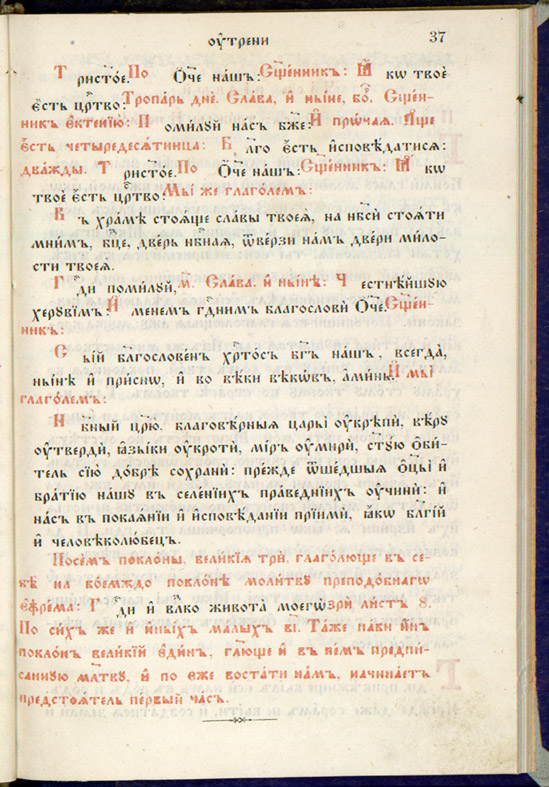 оу҆́трени 37
Трист҃о́е. По Ѻ҆́ч҃е на́шъ: Сщ҃е́нникъ: Ꙗ҆́кѡ твоѐ
є҆́сть цр҃тво: Тропа́рь днѐ. Сла́ва, и҆ ны́не, бо҃. Сщ҃е́н-
никъ є҆ктенїю̀: Поми́луй на́съ бж҃е: И҆ про́чаѧ. А҆́ще
є҆́сть четыредесѧ́тница: Бл҃го є҆́сть и҆сповѣ́датисѧ:
два́жды. Трист҃о́е: По Ѻ҆́ч҃е на́шъ: Сщ҃е́нникъ: Ꙗ҆́кѡ
твоѐ є҆́сть цр҃тво: Мы́ же глаго́лемъ:
Въ хра́мѣ стоѧ́ще сла́вы твоеѧ̀, на нб҃сѝ стоѧ́ти
мни́мъ, бц҃е, две́рь нб҃наѧ, ѿве́рзи на́мъ две́ри ми́ло-
сти твоеѧ̀.
Гд҃и поми́луй, м҃. Сла́ва, и҆ ны́нѣ: Честнѣ́йшую
херуви́мъ: И҆́менемъ гд҃нимъ благословѝ Ѻ҆́ч҃е. Сщ҃е́н-
никъ:
Сы́й благослове́нъ хр҃то́съ бг҃ъ на́шъ, всегда̀,
ны́нѣ и҆ при́снѡ, и҆ во вѣ́ки вѣкѡ́въ, а҆ми́нь: И҆ мы̀
глаго́лемъ:
Нб҃ный цр҃ю̀. благовѣ́рныѧ цары̀ оу҆крѣпѝ, вѣ́ру
оу҆твердѝ, ꙗ҆зы́ки оу҆кротѝ, мі́ръ оу҆мирѝ, ст҃у́ю ѻ҆би́-
тель сїю̀ до́брѣ сохранѝ: пре́жде ѿше́дшыѧ ѻ҆ц҃ы̀ и҆
бра́тїю на́шу въ селе́нїихъ пра́ведныхъ оу҆чинѝ: и҆
на́съ въ покаѧ́нїи и҆ и҆сповѣ́данїи прїимѝ, ꙗ҆́кѡ бл҃гі́й
и҆ человѣколю́бецъ.
Посе́мъ покло́ны, вели́кїѧ трѝ, глаго́люще въ се-
бѣ̀ на коемждо покло́нѣ моли́тву преподо́бнагѡ
є҆фре́ма: Гд҃и и҆ вл҃ко живота̀ моегѡ̀ зрѝ ли́стъ 8.
По си́хъ же и҆ и҆ны́хъ ма́лыхъ в҃і. Та́же па́ки и҆и҃нъ
покло́нъ вели́кїй є҆ди́нъ, гл҃юще и҆ въ не́мъ предпи́-
санную мл҃тву, и҆ по є҆́же воста́ти на́мъ, начина́етъ
предстоѧ́тель пе́рвый ча́съ.